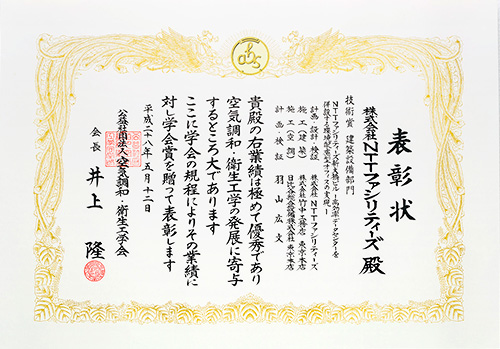 表彰状
株式会社NTTファシリティーズ 殿
技術賞 建築設備部門
NTTファシリティーズ新大橋ビル－高効率データセンターを
併設する環境配慮型オフィスの実現－
計画・設計・検証 株式会社 NTTファシリティーズ
施工(建築) 株式会社竹中工務店 東京本店
施工(空調) 日比谷総合設備株式会社 東京本店
計画・検証 羽山広文
貴殿の右業績は極めて優秀であり
空気調和・衛生工学の発展に寄与
するところ大であります
ここに学会の規程によりその業績に
対し学会賞を贈って表彰します
平成二十八年五月十二日
公益社団法人空気調和・衛生工学会
会長 井上 隆